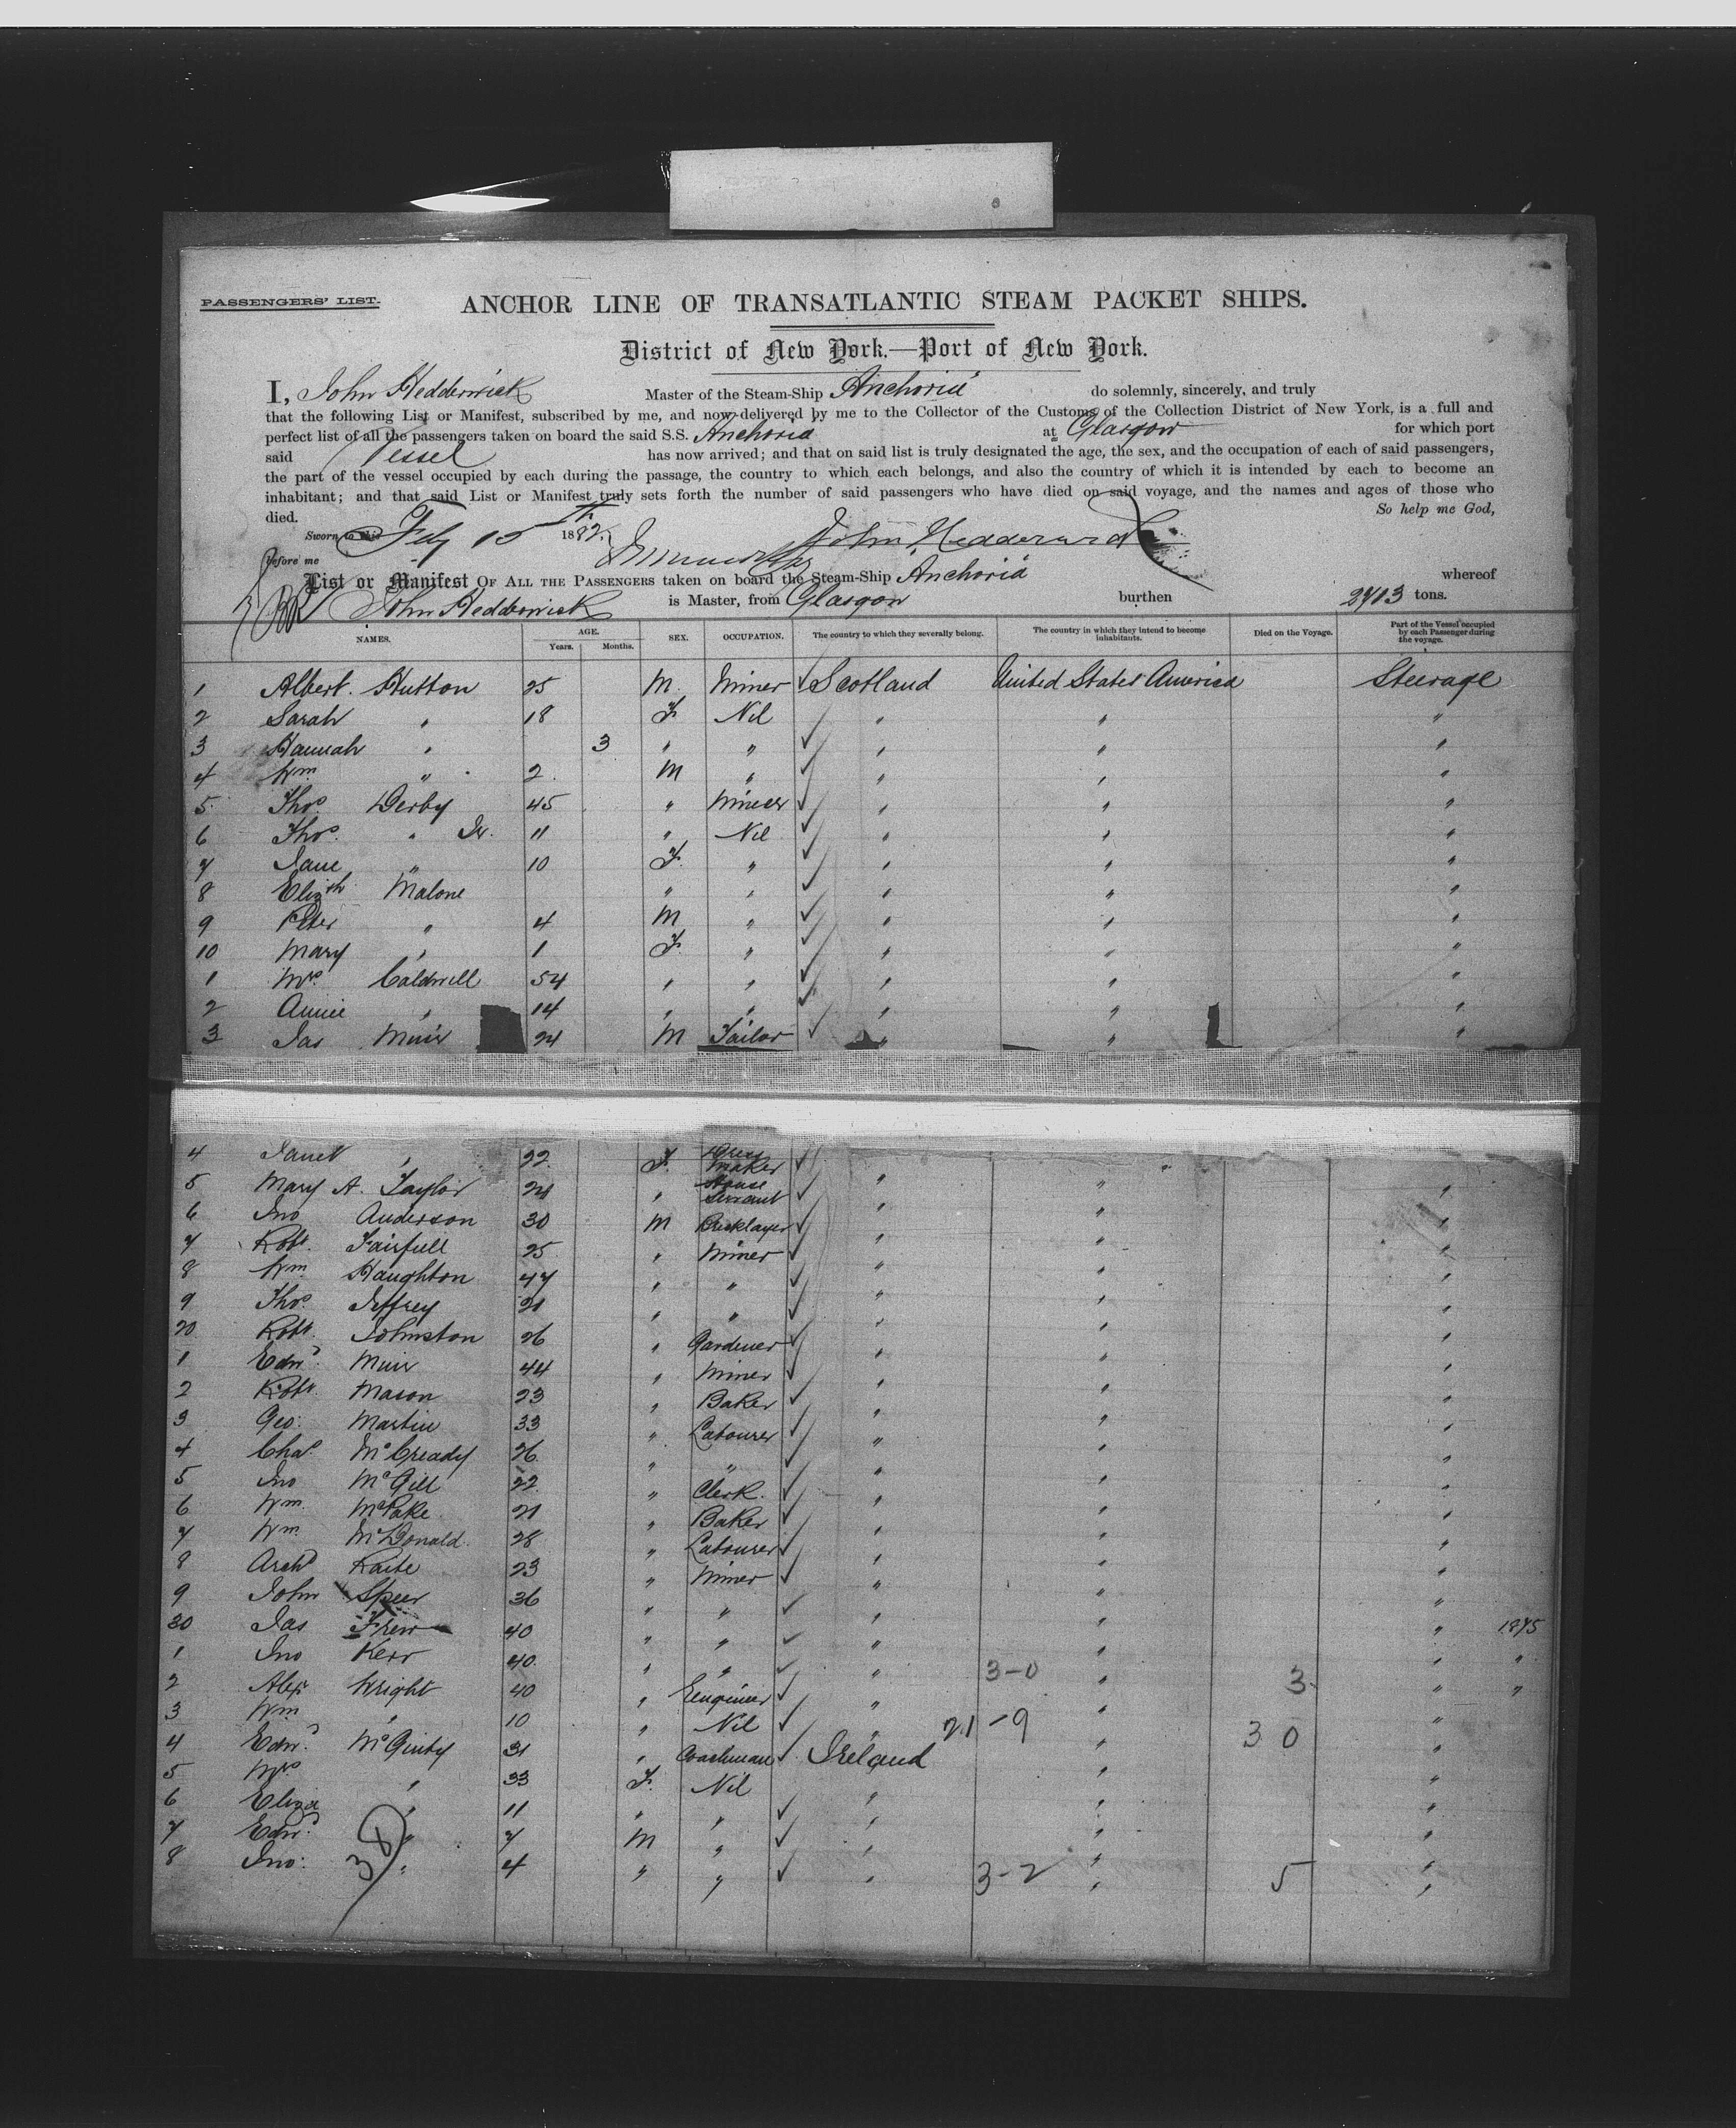 PASSENGERS' LIST.
ANCHOR LINE OF TRANSATLANTIC STEAM PACKET SHIPS.
District of New York.—Port of New York.
I, John Hedderwick Master of the Steam-Ship Anchoria do solemnly, sincerely, and truly
that the following List or Manifest, subscribed by me, and now delivered by me to the Collector of the Customs of the Collection District of New York, is a full and
perfect list of all the passengers taken on board the said S.S. Anchoria at Glasgow for which port
said Vessel has now arrived; and that on said list is truly designated the age, the sex, and the occupation of each of said passengers,
the part of the vessel occupied by each during the passage, the country to which each belongs, and also the country of which it is intended by each to become an
inhabitant; and that said List or Manifest truly sets forth the number of said passengers who have died on said voyage, and the names and ages of those who
died. So help me God,
Sworn to this Feby 15th 1882
Before me John Hedderwick
List or Manifest OF ALL THE PASSENGERS taken on board the Steam-Ship Anchoria whereof
John Hedderwick is Master, from Glasgow burthen 2713 tons.
NAMES. AGE. Years. Months. SEX. OCCUPATION. The country to which they severally belong. The country in which they intend to become inhabitants. Died on the Voyage. Part of the Vessel occupied by each Passenger during the voyage.
1 Albert. Hutton 25 M. Miner ✓ Scotland United States America Steerage
2 Sarah " 18 F. Nil ✓ " " "
3 Hannah " 3 " " ✓ " " "
4 Wm " 2 M " ✓ " " "
5 Thos Derby 45 " Miner ✓ " " "
6 Thos. " Jr. 11 " Nil ✓ " " "
7 Jane " 10 F. " ✓ " " "
8 Elizth Malone " " ✓ " " "
9 Peter " 4 M " ✓ " " "
10 Mary " 1 F. " ✓ " " "
1 Mrs. Caldwell 54 " " ✓ " " "
2 Annie " 14 " " ✓ " " "
3 Jas Muir 24 M Tailor ✓ " " "
4 Janet " 22 F. Dress Maker ✓ "
5 Mary A. Taylor 21 " House Servant ✓ " " "
6 Jno Anderson 30 M Bricklayer ✓ " " "
7 Robt. Fairfull 25 " Miner ✓ " " "
8 Wm Haughton 47 " " ✓ " " "
9 Thos. Jeffrey 21 " " ✓ " " "
20 Robt. Johnston 26 " Gardener ✓ " " "
1 Edwd. Muir 44 " Miner ✓ " " "
2 Robt. Mason 23 " Baker ✓ " " "
3 Geo: Martin 33 " Labourer ✓ " " "
4 Chas. McCready 26 " " ✓ " " "
5 Jno McGill 22 " Clerk. ✓ " " "
6 Wm. McPake 21 " Baker ✓ " " "
7 Wm. McDonald 28 " Labourer ✓ " " "
8 Archd Raite 23 " Miner ✓ " " "
9 John Speer 36 " " ✓ " " "
30 Jas Frew 40 " " ✓ " " " 1875
1 Jno Kerr 40 " " ✓ " 3-0 " 3 " "
2 Alex Wright 40 " Engineer ✓ " " " "
3 Wm " 10 " Nil ✓ " 21-9 " 30 "
4 Edwd. McGinty 31 " Coachman ✓ Ireland " "
5 Mrs " 33 F. Nil " " "
6 Eliza " 11 " " ✓ " " "
7 Edwd. " 7 M " ✓ " " "
8 Jno: " 4 " " ✓ " 3-2 " 5 "
38